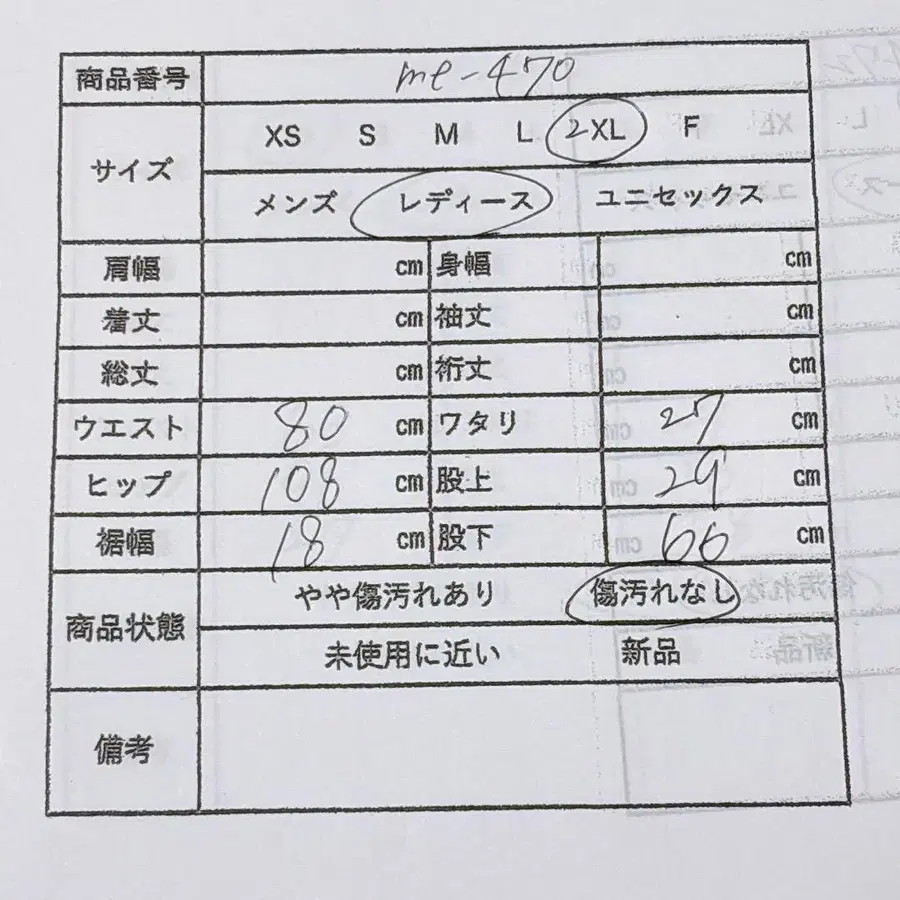 商品番号 me-470
サイズ XS S M L 2XL F
メンズ レディース ユニセックス
肩幅 cm 身幅 cm
着丈 cm 袖丈 cm
総丈 cm 裄丈 cm
ウエスト 80 cm ワタリ 27 cm
ヒップ 108 cm 股上 29 cm
裾幅 18 cm 股下 66 cm
商品状態 やや傷汚れあり 傷汚れなし
未使用に近い 新品
備考